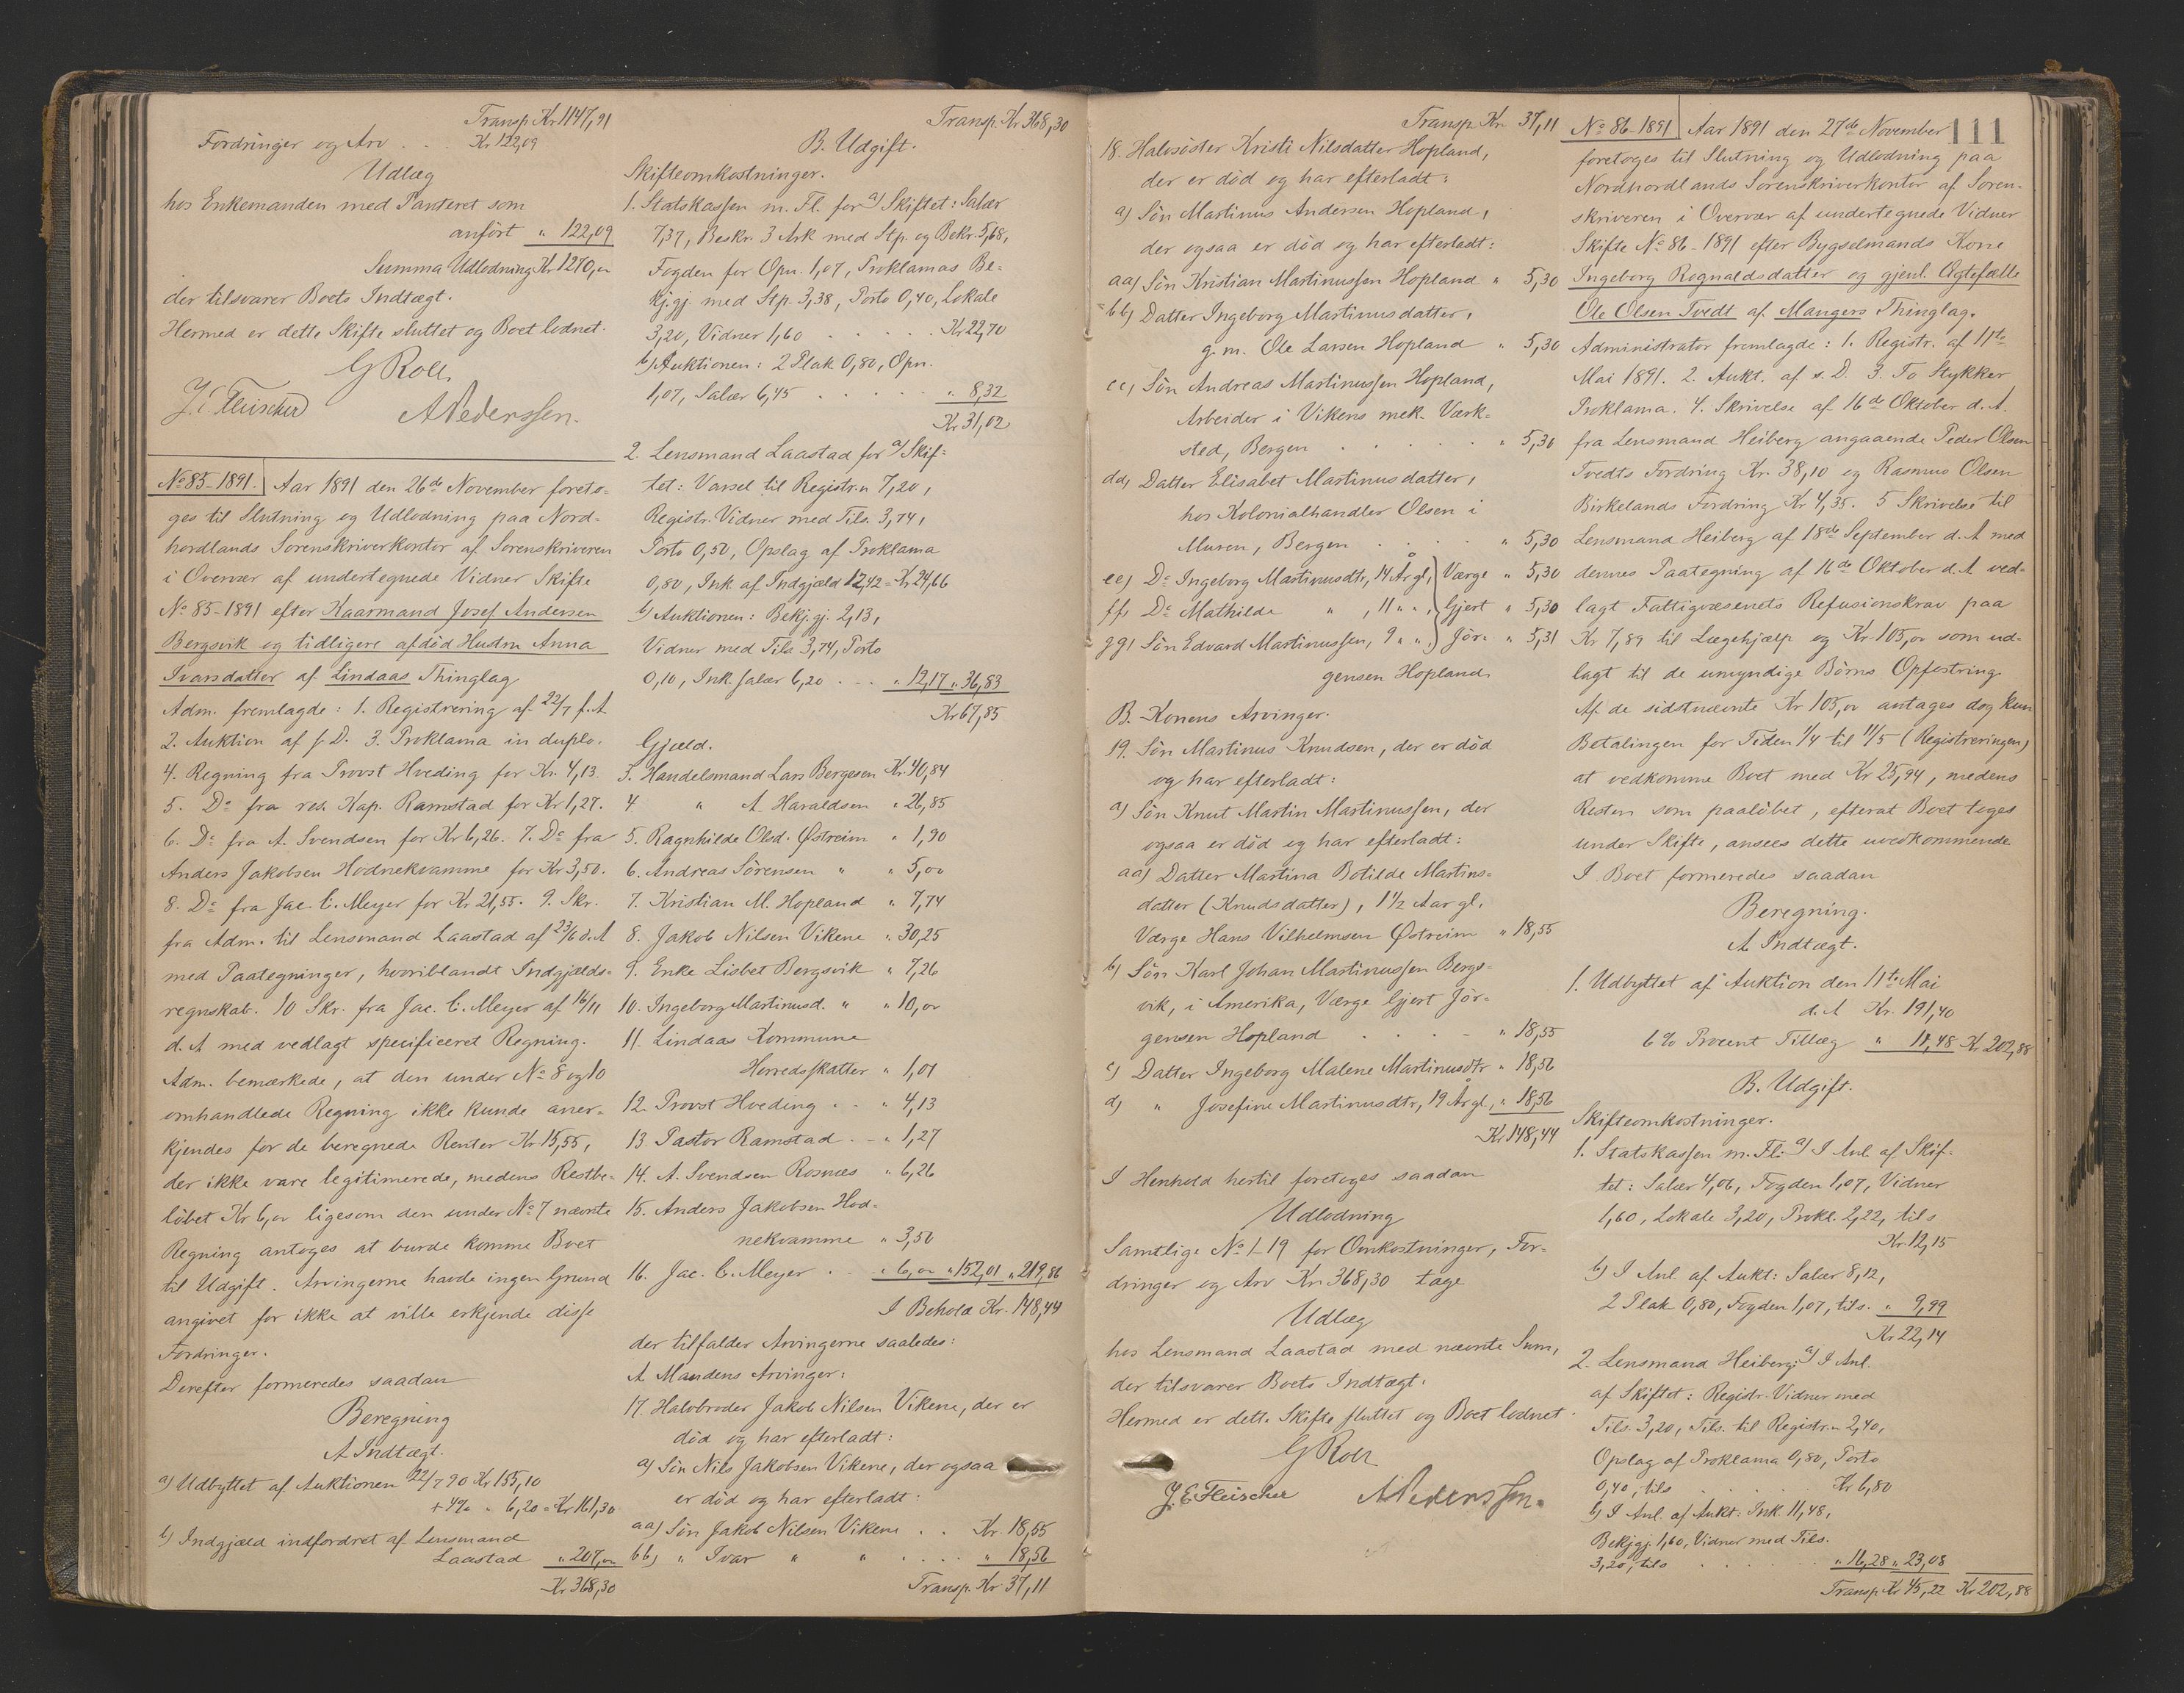 Transp. Kr 1147,91
Fordringer og Arv . . . Kr 122,09
Udlæg
hos Enkemanden med Panteret som
anført " 122,09
Summa Udlodning Kr 1270,00
der tilsvarer Boets Indtægt.
Hermed er dette Skifte sluttet og Boet lodnet.
G Roll
J. E. Fleischer
A Pederssen.
No 85-1891. Aar 1891 den 26de November foreto-
ges til Slutning og Udlodning paa Nord-
hordlands Sorenskriverkontor af Sorenskriveren
i Overvær af undertegnede Vidner Skifte
No 85-1891 efter Kaarmand Josef Andersen
Bergsvik og tidligere afdød Hustru Anna
Ivarsdatter af Lindaas Thinglag
Adm. fremlagde: 1. Registrering af 22/7 f. A.
2. Auktion af s. D. 3. Proklama in duplo.
4. Regning fra Provst Hveding for Kr. 4,13.
5. Do fra res. Kap. Ramstad for Kr 1,27.
6. Do fra A. Svendsen for Kr 6,26. 7. Do fra
Anders Jakobsen Hodnekvamme for Kr 3,50.
8. Do fra Jac. C. Meyer for Kr 21,55. 9. Skr.
fra Adm. til Lensmand Laastad af 23/6 d. A
med Paategninger, hvoriblandt Indgjælds-
regnskab. 10 Skr. fra Jac. C. Meyer af 16/11
d. A med vedlagt specificeret Regning.
Adm. bemærkede, at den under No 8 og 10
omhandlede Regning ikke kunde aner-
kjendes for de beregnede Renter Kr 15,55,
der ikke vare legitimerede, medens Restbe-
løbet Kr 6,00 ligesom den under No 7 nævnte
Regning antoges at burde komme Boet
til Udgift. Arvingerne havde ingen Grund
angivet for ikke at ville erkjende disse
Fordringer.
Derefter formeredes saadan
Beregning
A Indtægt.
a) Udbyttet af Auktionen 22/7 90 Kr 155,10
+ 4% " 6,20 = Kr 161,30
b) Indgjæld indfordret af Lensmand
Laastad " 207,00
Kr 368,30
Transp. Kr 368,30
B. Udgift.
Skifteomkostninger.
1. Statskassen m. Fl. for a) Skiftet: Salær
7,37, Beskr. 3 Ark med Stp. og Bekr. 5,68,
Fogden for Opn. 1,07, Proklamas Be-
kj.gj. med Stp. 3,38, Porto 0,40, Lokale
3,20, Vidner 1,60 . . . . . Kr 22,70
b) Auktionen: 2 Plak 0,80, Opn.
1,07, Salær 6,45 . . . . . " 8,32
Kr 31,02
2. Lensmand Laastad for a) Skif-
tet: Varsel til Registr.n 7,20,
Registr. Vidner med Tils. 3,74,
Porto 0,50, Opslag af Proklama
0,80, Ink. af Indgjæld 12,42 = Kr. 24,66
b) Auktionen: Bekj.gj. 2,13,
Vidner med Tils 3,74, Porto
0,10, Ink. salær 6,20 . . . " 12,17 " 36,83
Kr 67,85
Gjæld.
3. Handelsmand Lars Bergesen Kr. 40,84
4 " A Haraldsen " 26,85
5. Ragnhilde Olsd. Østreim " 1,90
6. Andreas Sörensen " " 5,00
7. Kristian M. Hopland " 7,74
8. Jakob Nilsen Vikene " 30,25
9. Enke Lisbet Bergsvik " 7,26
10. Ingeborg Martinusd. " " 10,00
11. Lindaas Kommune
Herredsskatter " 1,01
12. Provst Hveding . . " 4,13
13. Pastor Ramstad . . " 1,27
14. A. Svendsen Rosnæs " 6,26
15. Anders Jakobsen Hod-
nekvamme " 3,50
16. Jac. C. Meyer . . " 6,00 " 152,01 " 219,86
I Behold Kr. 148,44
der tilfalder Arvingerne saaledes:
A. Mandens Arvinger:
17. Halvbroder Jakob Nilsen Vikene, der er
död og har efterladt:
a) Sön Nils Jakobsen Vikene, der ogsaa
er död og har efterladt:
aa) Sön Jakob Nilsen Vikene . . Kr. 18,55
bb) " Ivar " " . . . . " 18,56
Transp. Kr 37,11
Transp. Kr. 37,11
18. Halvsöster Kristi Nilsdatter Hopland,
der er död og har efterladt:
a) Sön Martinus Andersen Hopland,
der ogsaa er död og har efterladt:
aa) Sön Kristian Martinussen Hopland " 5,30
bb) Datter Ingeborg Martinusdatter,
g. m. Ole Larsen Hopland " 5,30
cc) Sön Andreas Martinussen Hopland,
Arbeider i Vikens mek. Værk-
sted, Bergen . . . . " 5,30
dd) Datter Elisabet Martinusdatter,
hos Kolonialhandler Olsen i
Muren, Bergen . . . . " 5,30
ee) Do Ingeborg Martinusdtr, 14 År gl, } Værge " 5,30
ff) Do Mathilde " , 11 " " , } Gjert " 5,30
gg) Sön Edvard Martinussen, 9 " " } Jör- " 5,31
gensen Hopland.
B. Konens Arvinger.
19. Sön Martinus Knudsen, der er död
og har efterladt:
a) Sön Knut Martin Martinussen, der
ogsaa er död og har efterladt:
aa) Datter Martina Botilde Martins-
datter (Knudsdatter), 1 1/2 Aar gl,
Værge Hans Vilhelmsen Østreim " 18,55
b) Sön Karl Johan Martinussen Bergs-
vik, i Amerika, Værge Gjert Jör-
gensen Hopland . . . " 18,55
c) Datter Ingeborg Malene Martinusdtr " 18,56
d) " Josefine Martinusdtr, 19 År gl, " 18,56
Kr 148,44
I Henhold hertil foretoges saadan
Udlodning
Samtlige No 1-19 for Omkostninger, For-
dringer og Arv Kr. 368,30 tage
Udlæg
hos Lensmand Laastad med nævnte Sum,
der tilsvarer Boets Indtægt.
Hermed er dette Skifte sluttet og Boet lodnet.
G Roll
J. E. Fleischer
A Pederssen.
111
No 86-1891 Aar 1891 den 27de November
foretoges til Slutning og Udlodning paa
Nordhordlands Sorenskriverkontor af Soren-
skriveren i Overvær af undertegnede Vidner
Skifte No 86-1891 efter Bygselmands Kone
Ingeborg Rognaldsdatter og gjenl. Ægtefælle
Ole Olsen Tvedt af Mangers Thinglag.
Administrator fremlagde: 1. Registr. af 11te
Mai 1891. 2. Aukt. af s. D. 3. To Stykker
Proklama. 4. Skrivelse af 16de Oktober d. A.
fra Lensmand Heiberg angaaende Peder Olsen
Tvedts Fordring Kr. 38,10 og Rasmus Olsen
Birkelands Fordring Kr 4,35. 5 Skrivelse til
Lensmand Heiberg af 18de September d. A med
dennes Paategning af 16de Oktober d. A ved-
lagt Fattigvæsenets Refusionskrav paa
Kr 7,89 til Lægehjælp og Kr. 105,00 som ud-
lagt til de umyndige Börns Opfostring
Af de sidstnævnte Kr 105,00 antages dog kun
Betalingen for Tiden 1/4 til 11/5 (Registreringen)
at vedkomme Boet med Kr 25,94, medens
Resten som paalöbet, efterat Boet toges
under Skifte, ansees dette uvedkommende
I Boet formeredes saadan
Beregning.
A Indtægt.
1. Udbyttet af Auktion den 11te Mai
d. A Kr. 191,40
6 % Procent Tillæg " 11,48 Kr 202,88
B. Udgift.
Skifteomkostninger.
1. Statskassen m. Fl. a) I Anl. af Skif-
tet: Salær 4,06, Fogden 1,07, Vidner
1,60, Lokale 3,20, Prokl. 2,22, tils
Kr 12,15
b) I Anl. af Aukt: Salær 8,12,
2 Plak 0,80, Fogden 1,07, tils. " 9,99
Kr 22,14
2. Lensmand Heiberg: a) I Anl.
af Skiftet: Registr. Vidner med
Tils. 3,20, Tils. til Registr.n 2,40,
Opslag af Proklama 0,80, Porto
0,40, tils . . . Kr 6,80
b) I Anl. af Aukt: Ink. 11,48,
Bekj.gj. 1,60, Vidner med Tils.
3,20, tils . . . " 16,28 " 23,08
Transp Kr 45,22 Kr 202,88